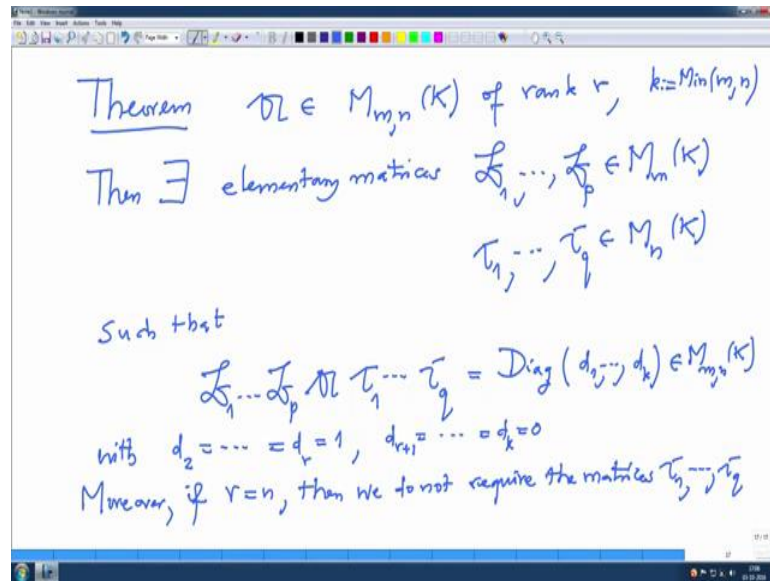 Theorem 𝔄 ∈ M_{m,n}(K) of rank r, k:=Min(m,n)
Then ∃ elementary matrices 𝔏_1, ..., 𝔏_p ∈ M_m(K)
τ_1, ..., τ_q ∈ M_n(K)
such that
𝔏_1 ... 𝔏_p 𝔄 τ_1 ... τ_q = Diag(d_1, ..., d_k) ∈ M_{m,n}(K)
with d_2 = ... = d_r = 1, d_{r+1} = ... = d_k = 0
Moreover, if r=n, then we do not require the matrices τ_1, ..., τ_q